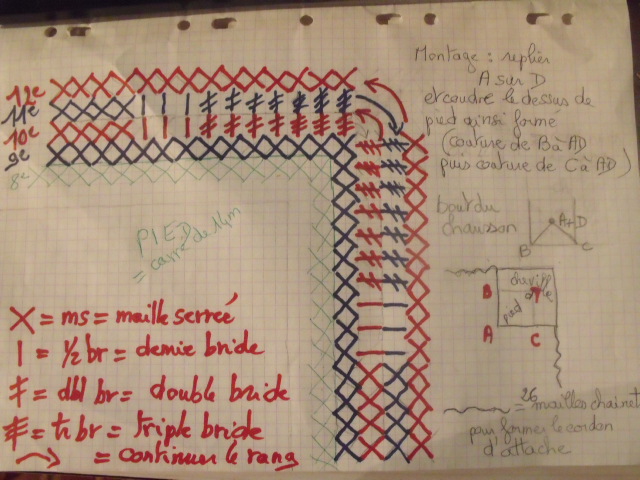 Montage : replier
A sur D
et coudre le dessus de
pied ainsi formé
(couture de B à AD
puis couture de C à AD)
12e
11e
10e
9e
8e
PIED
= carré de 14m
bout du
chausson
A+D
B
C
cheville
B
pied
A
C
X = ms = maille serrée
= 1/2 br = demie bride
= dbl br = double bride
= tr br = triple bride
= continuer le rang
= 26 mailles chainet
pour former le cordon
d'attache